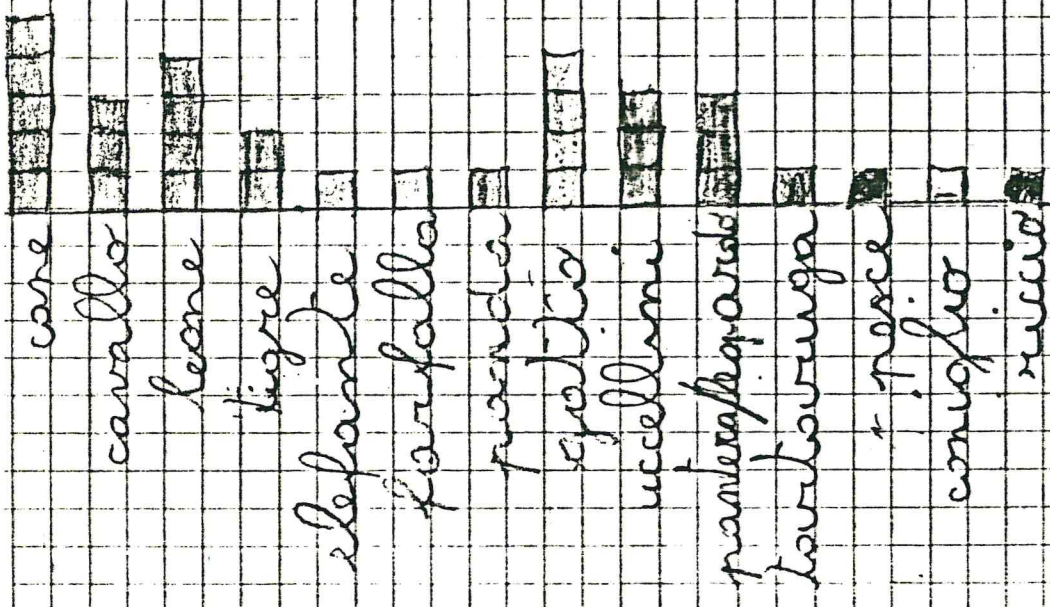 cane
cavallo
leone
tigre
elefante
farfalla
panda
gatto
uccellini
pantera/leopardo
tartaruga
pesce
coniglio
riccio